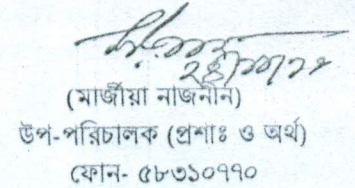 (মার্জীয়া নাজনীন)
উপ-পরিচালক (প্রশাঃ ও অর্থ)
ফোন- ৫৮৩১০৭৭০